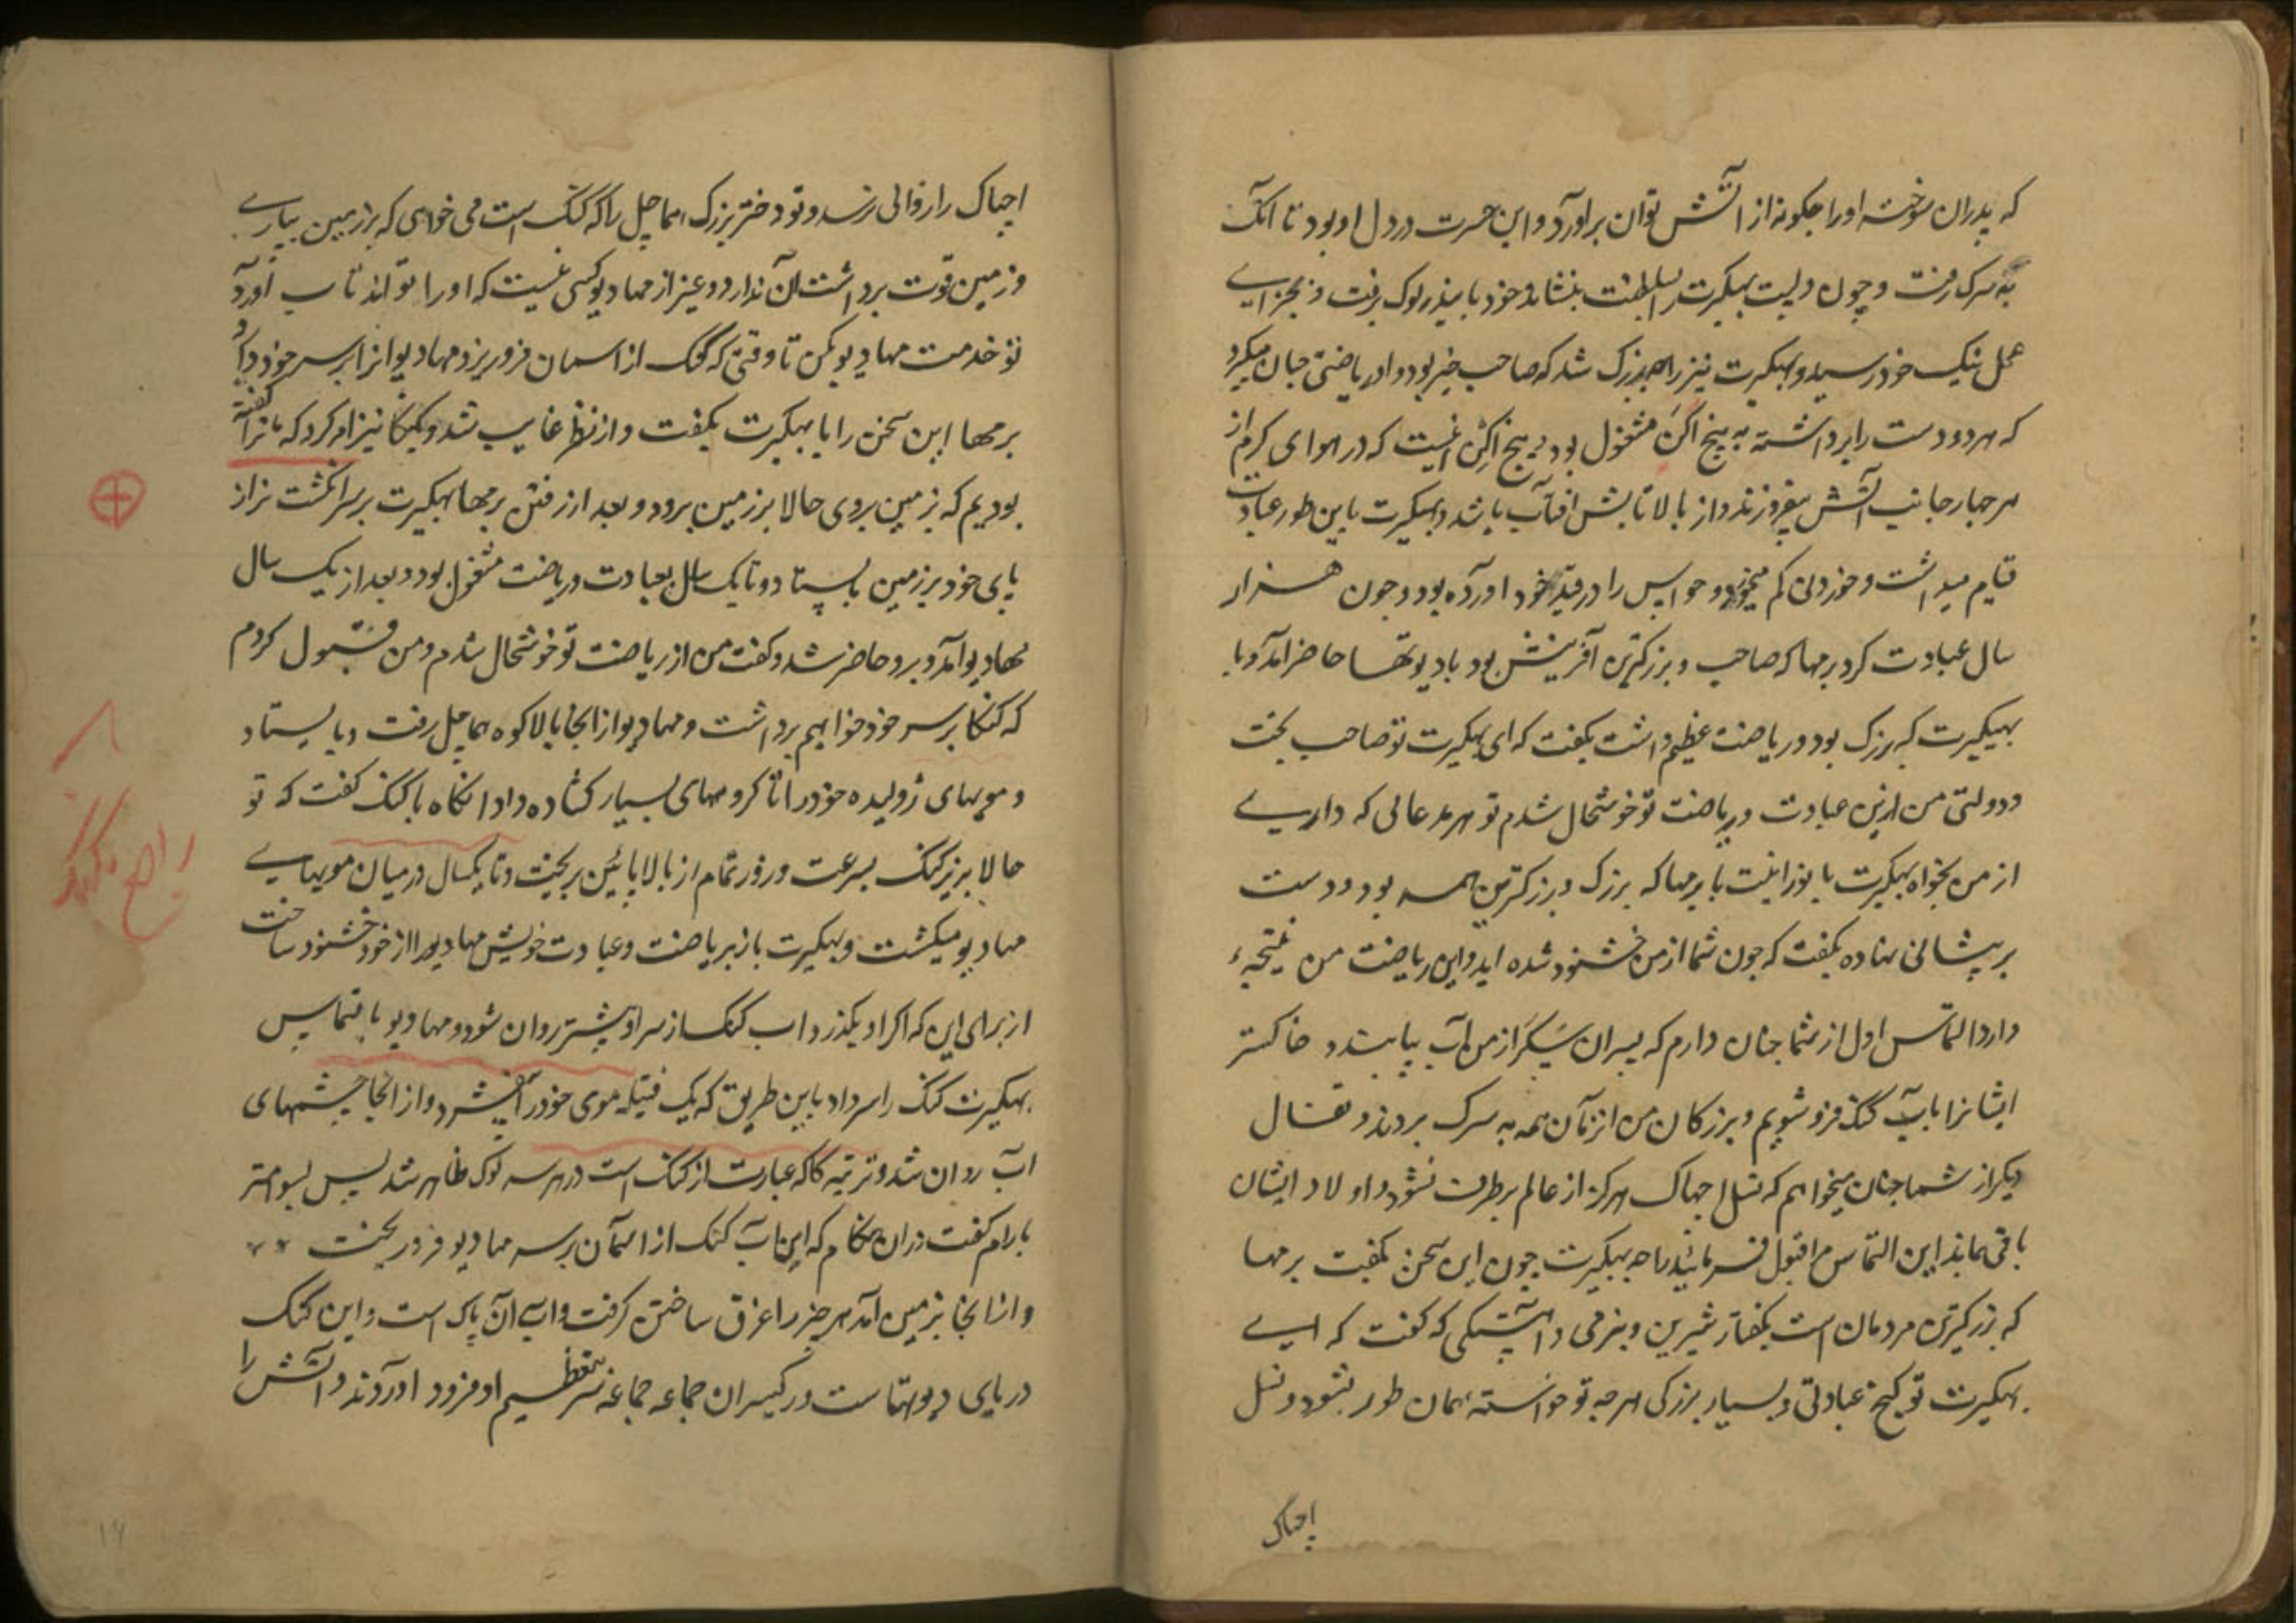 که پدران سوخته او را چکونه از آتش توان برآورد و این حسرت در دل او بود تا آنک
به سرک رفت و چون دلیپ بهکیرت را بسلطنت بنشاند و خود باینذر لوک برفت و بجزای
عمل نیک خود رسید و بهکیرت نیز راجه بزرک شد که صاحب خیر بود و او ریاضتی چنان میکرد
که هر دو دست را برداشته به پنج اکن مشغول بود و پنج اکن انیست که در هوای کرم از
هر چهار جانب آتش بیفروزند و از بالا تابش افتاب باشد و بهکیرت باین طور عبادت
قیام میداشت و خوردن کم میخورد و حواس را در قید خود اورده بود و چون هزار
سال عبادت کرد برمها که صاحب و بزرکترین آفرینش بود با دیوتها حاضر آمد و با
بهیکیرت که بزرک بود و ریاضت عظیم داشت بکفت که ای بهکیرت تو صاحب بخت
و دولتی من ازین عبادت و ریاضت تو خوشحال شدم تو هر مدعائی که داری
از من بخواه بهکیرت با نورانیت با برمها که بزرک و بزرکترین همه بود دو دست
بر پیشانی نهاده بکفت که چون شما از من خشنود شده اید و این ریاضت من نتیجهٔ
دارد التماس اول از شما چنان دارم که پسران سکر از من آب بیابند و خاکستر
ایشانرا بآب کنک فرو شویم و بزرکان من از آن همه به سرک بردند و
دیکر از شما چنان میخواهم که نسل اچهاک هرکز از عالم برطرف نشود و اولاد ایشان
باقی بماند این التماس مرا قبول فرمائید راجه بهیکیرت چون این سخن بکفت برمها
که بزرکترین مردمان است بکفتار شیرین و بنرمی و آهستکی که کفت که ای
بهکیرت تو کنج عبادتی و بسیار بزرکی هر چه تو خواستهٔ همان طور بشود و نسل
اچهاک
اچهاک را زوالی نرسد و تو دختر بزرک هماچل را که کنک است می خواهی که بر زمین بیاری
و زمین قوت برداشت آن ندارد و غیر از مهادیو کسی نیست که او را تواند تاب آورد
تو خدمت مهادیو بکن تا وقتی که کنک از اسمان فرو ریزد مهادیو انرا بر سر خود دارد
برمها این سخن را با بهکیرت بکفت و از نظر غایب شد و بکنکا نیز امر کرد که ما ترا کفته
بودیم که بزمین بروی حالا بر زمین برو و بعد از رفتن برمها بهکیرت بر سر انکشت نر از
پای خود بر زمین بایستاد و تا یک سال بعبادت و ریاضت مشغول بود و بعد از یک سال
مهادیو آمد و برو حاضر شد و کفت من از ریاضت تو خوشحال شدم و من قبول کردم
که کنکا بر سر خود خواهم برداشت و مهادیو از انجا بالا کوه هماچل رفت و بایستاد
و مویهای ژولیده خود را تا کروههای بسیار کشاده داد انکاه با کنک کفت که تو
حالا بریز کنک بسرعت و زور تمام از بالا پائین بریخت و تا یکسال در میان مویهای
مهادیو میکشت و بهکیرت باز بریاضت و عبادت خویش مهادیو را از خود خشنود ساخت
از برای این که اکر او بکذرد اب کنک از سر او پیشتر روان شود و مهادیو بالتماس
بهکیرت کنک را سر داد باین طریق که یک فتیله موی خود را بیفشرد و از انجا چشمهای
اب روان شد و ترتیه کاکه عبارت از کنک است در هر سه لوک ظاهر شد پس بسوامتر
با رام کفت در ان هنکام که این آب کنک از آسمان بر سر مهادیو فرو ریخت
و از انجا بزمین آمد هر چیز را غرق ساختن کرفت و اب آن پاک است و این کنک
دریای دیوتهاست و رکیسران جماعه جماعه سر تعظیم او فرود اوردند و آتش را
۱۶